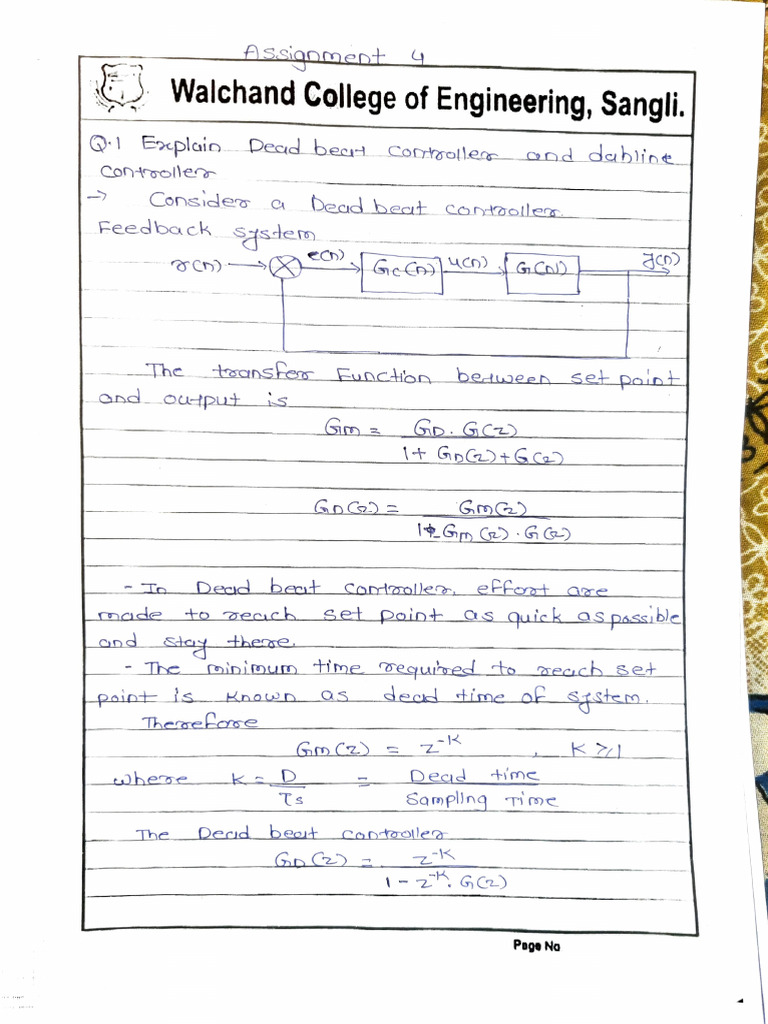 Assignment 4
Walchand College of Engineering, Sangli.
Q.1 Explain Dead beat controller and dahline
controller
→ Consider a Dead beat controller
Feedback system
r(n) e(n) Gc(n) u(n) G(n) y(n)
The transfer Function between set point
and output is
Gm = GD . G(z)
1 + GD(z) + G(z)
GD(z) = Gm(z)
1 - Gm(z) . G(z)
- In Dead beat controller, effort are
made to reach set point as quick as possible
and stay there.
- The minimum time required to reach set
point is known as dead time of system.
Therefore
Gm(z) = z^-K , K ≥ 1
where K = D = Dead time
Ts Sampling Time
The Dead beat controller
GD(z) = z^-K
1 - z^-K . G(z)
Page No